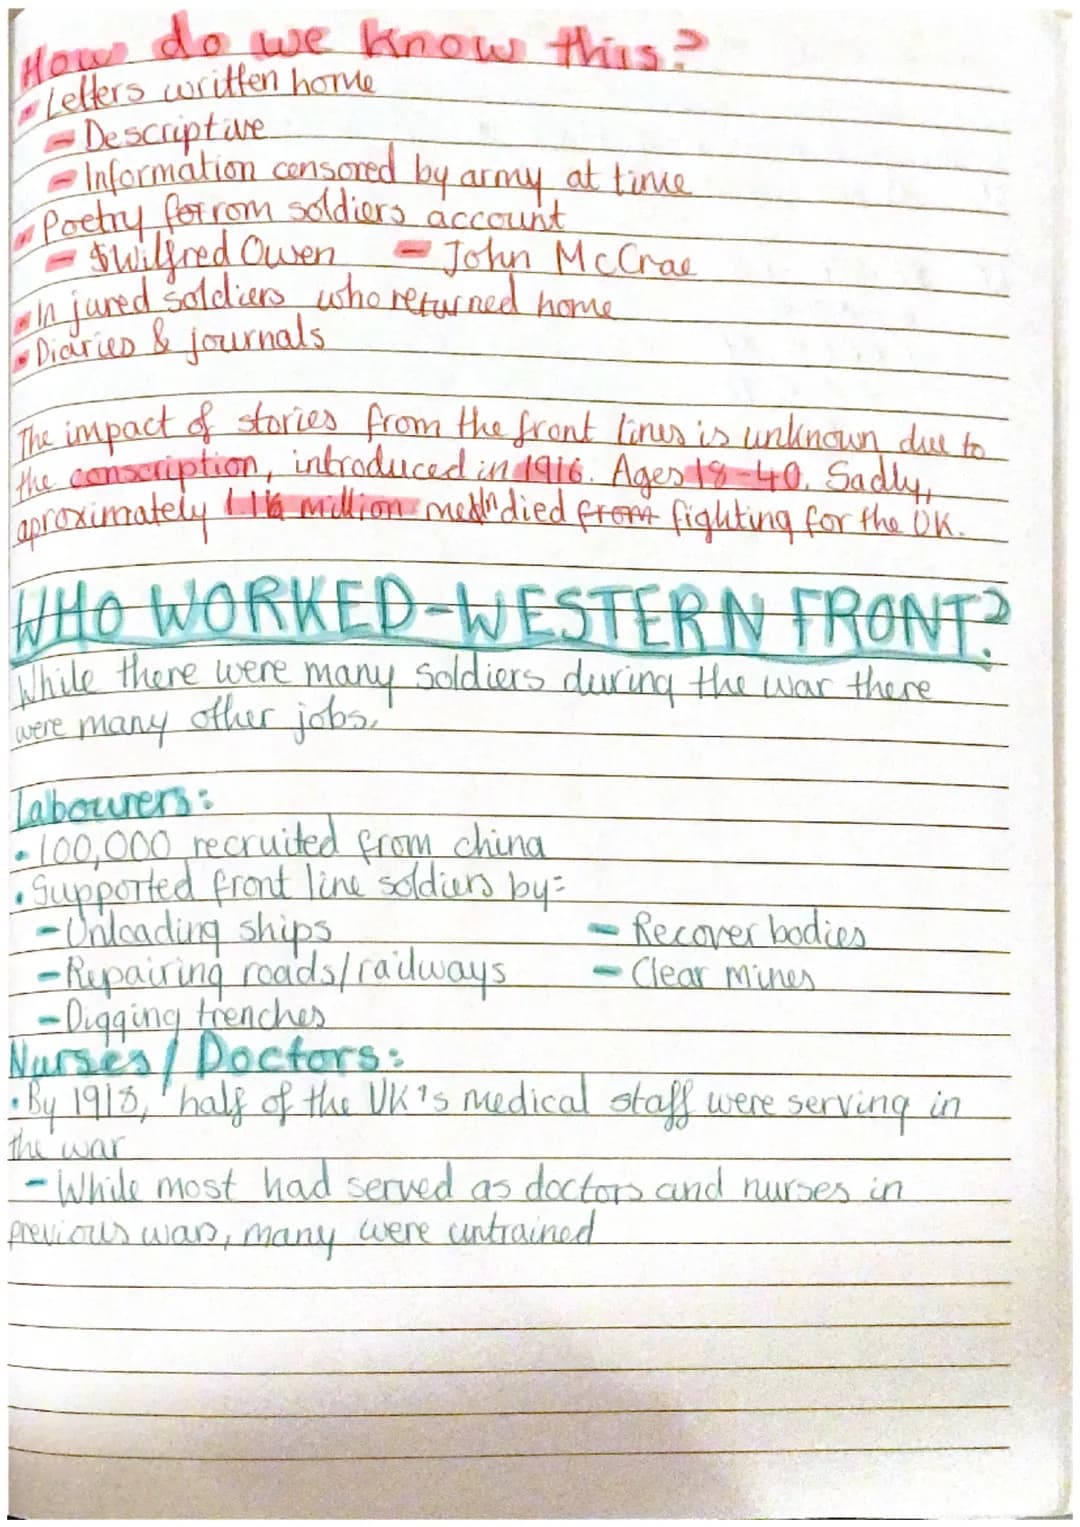 How do we know this?
- Letters written home
- Descriptive
- Information censored by army at time
- Poetry from soldiers account
- Wilfred Owen - John McCrae
- Injured soldiers who returned home
- Diaries & journals
The impact of stories from the front lines is unknown due to
the conscription, introduced in 1916. Ages 18-40. Sadly,
aproximately million men died fighting for the UK.
WHO WORKED-WESTERN FRONT?
While there were many soldiers during the war there
were many other jobs.
Labourers:
• 100,000 recruited from china
• Supported front line soldiers by:
- Unloading ships - Recover bodies
- Repairing roads/railways - Clear mines
- Digging trenches
Nurses/Doctors:
• By 1918, half of the UK's medical staff were serving in
the war
- While most had served as doctors and nurses in
previous wars, many were untrained